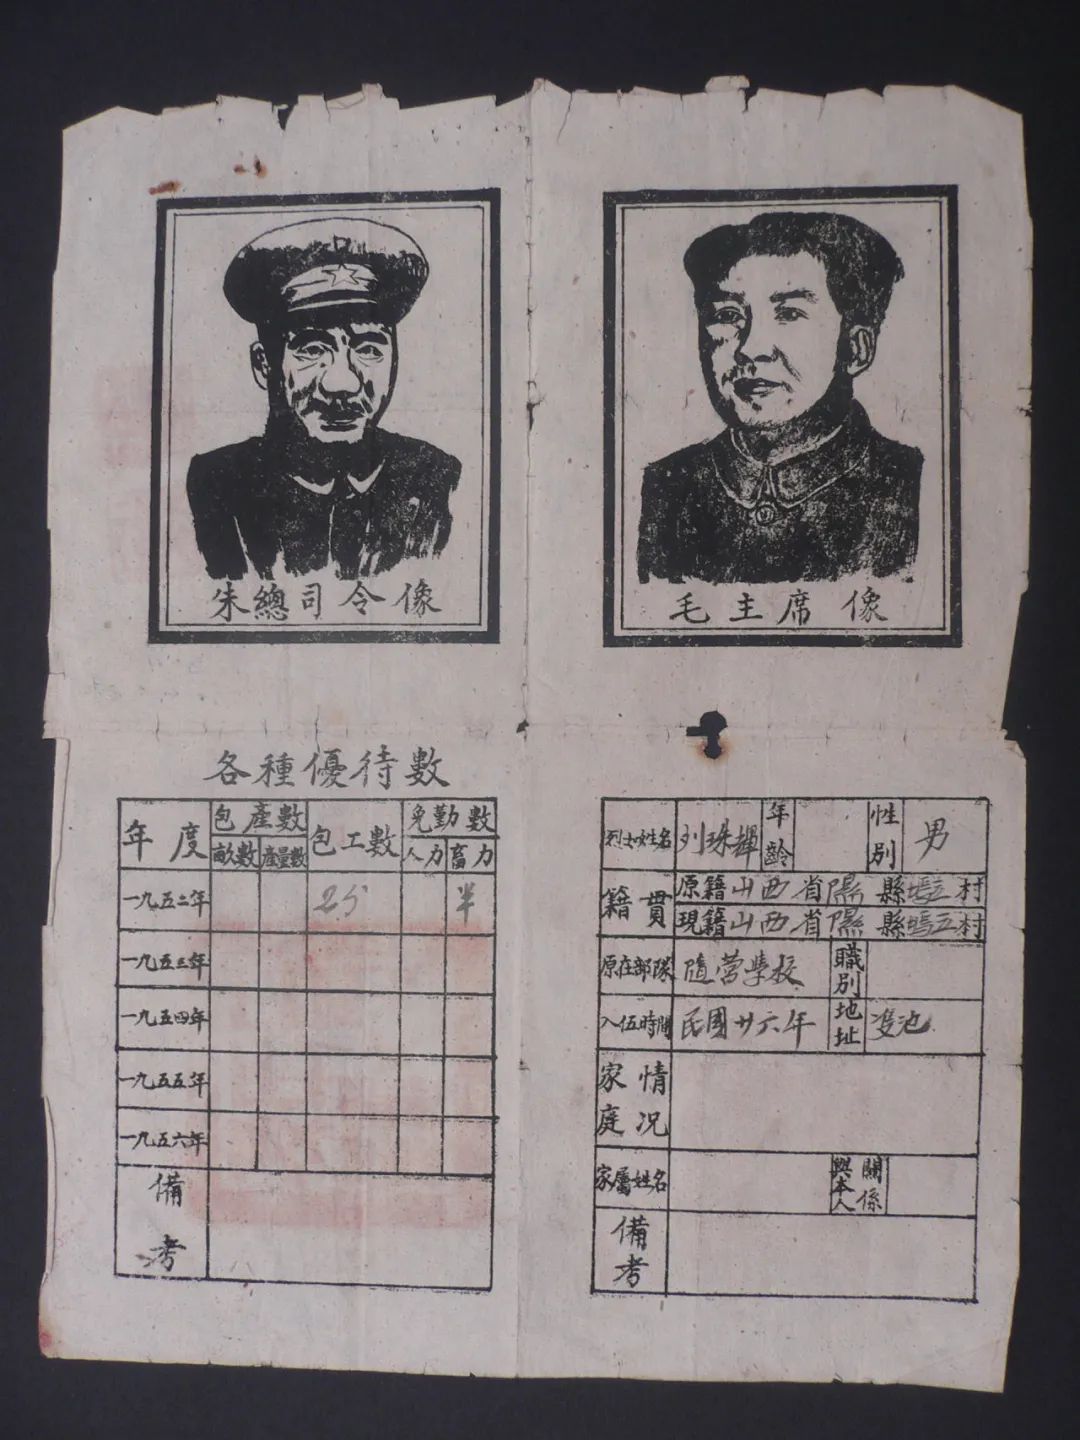 朱總司令像
毛主席像
各種優待數
年度 包產數 包工數 免勤數
畝數 產量數 人力 畜力
一九五二年 25 半
一九五三年
一九五四年
一九五五年
一九五六年
備考
烈士姓名 刘珠輝 年齡 性別 男
籍貫 原籍山西省隰縣 村
現籍山西省隰縣 村
原在部隊 隨营學校 職別
入伍時間 民國廿六年 地址 双池
家庭情况
家屬姓名 與本人關係
備考